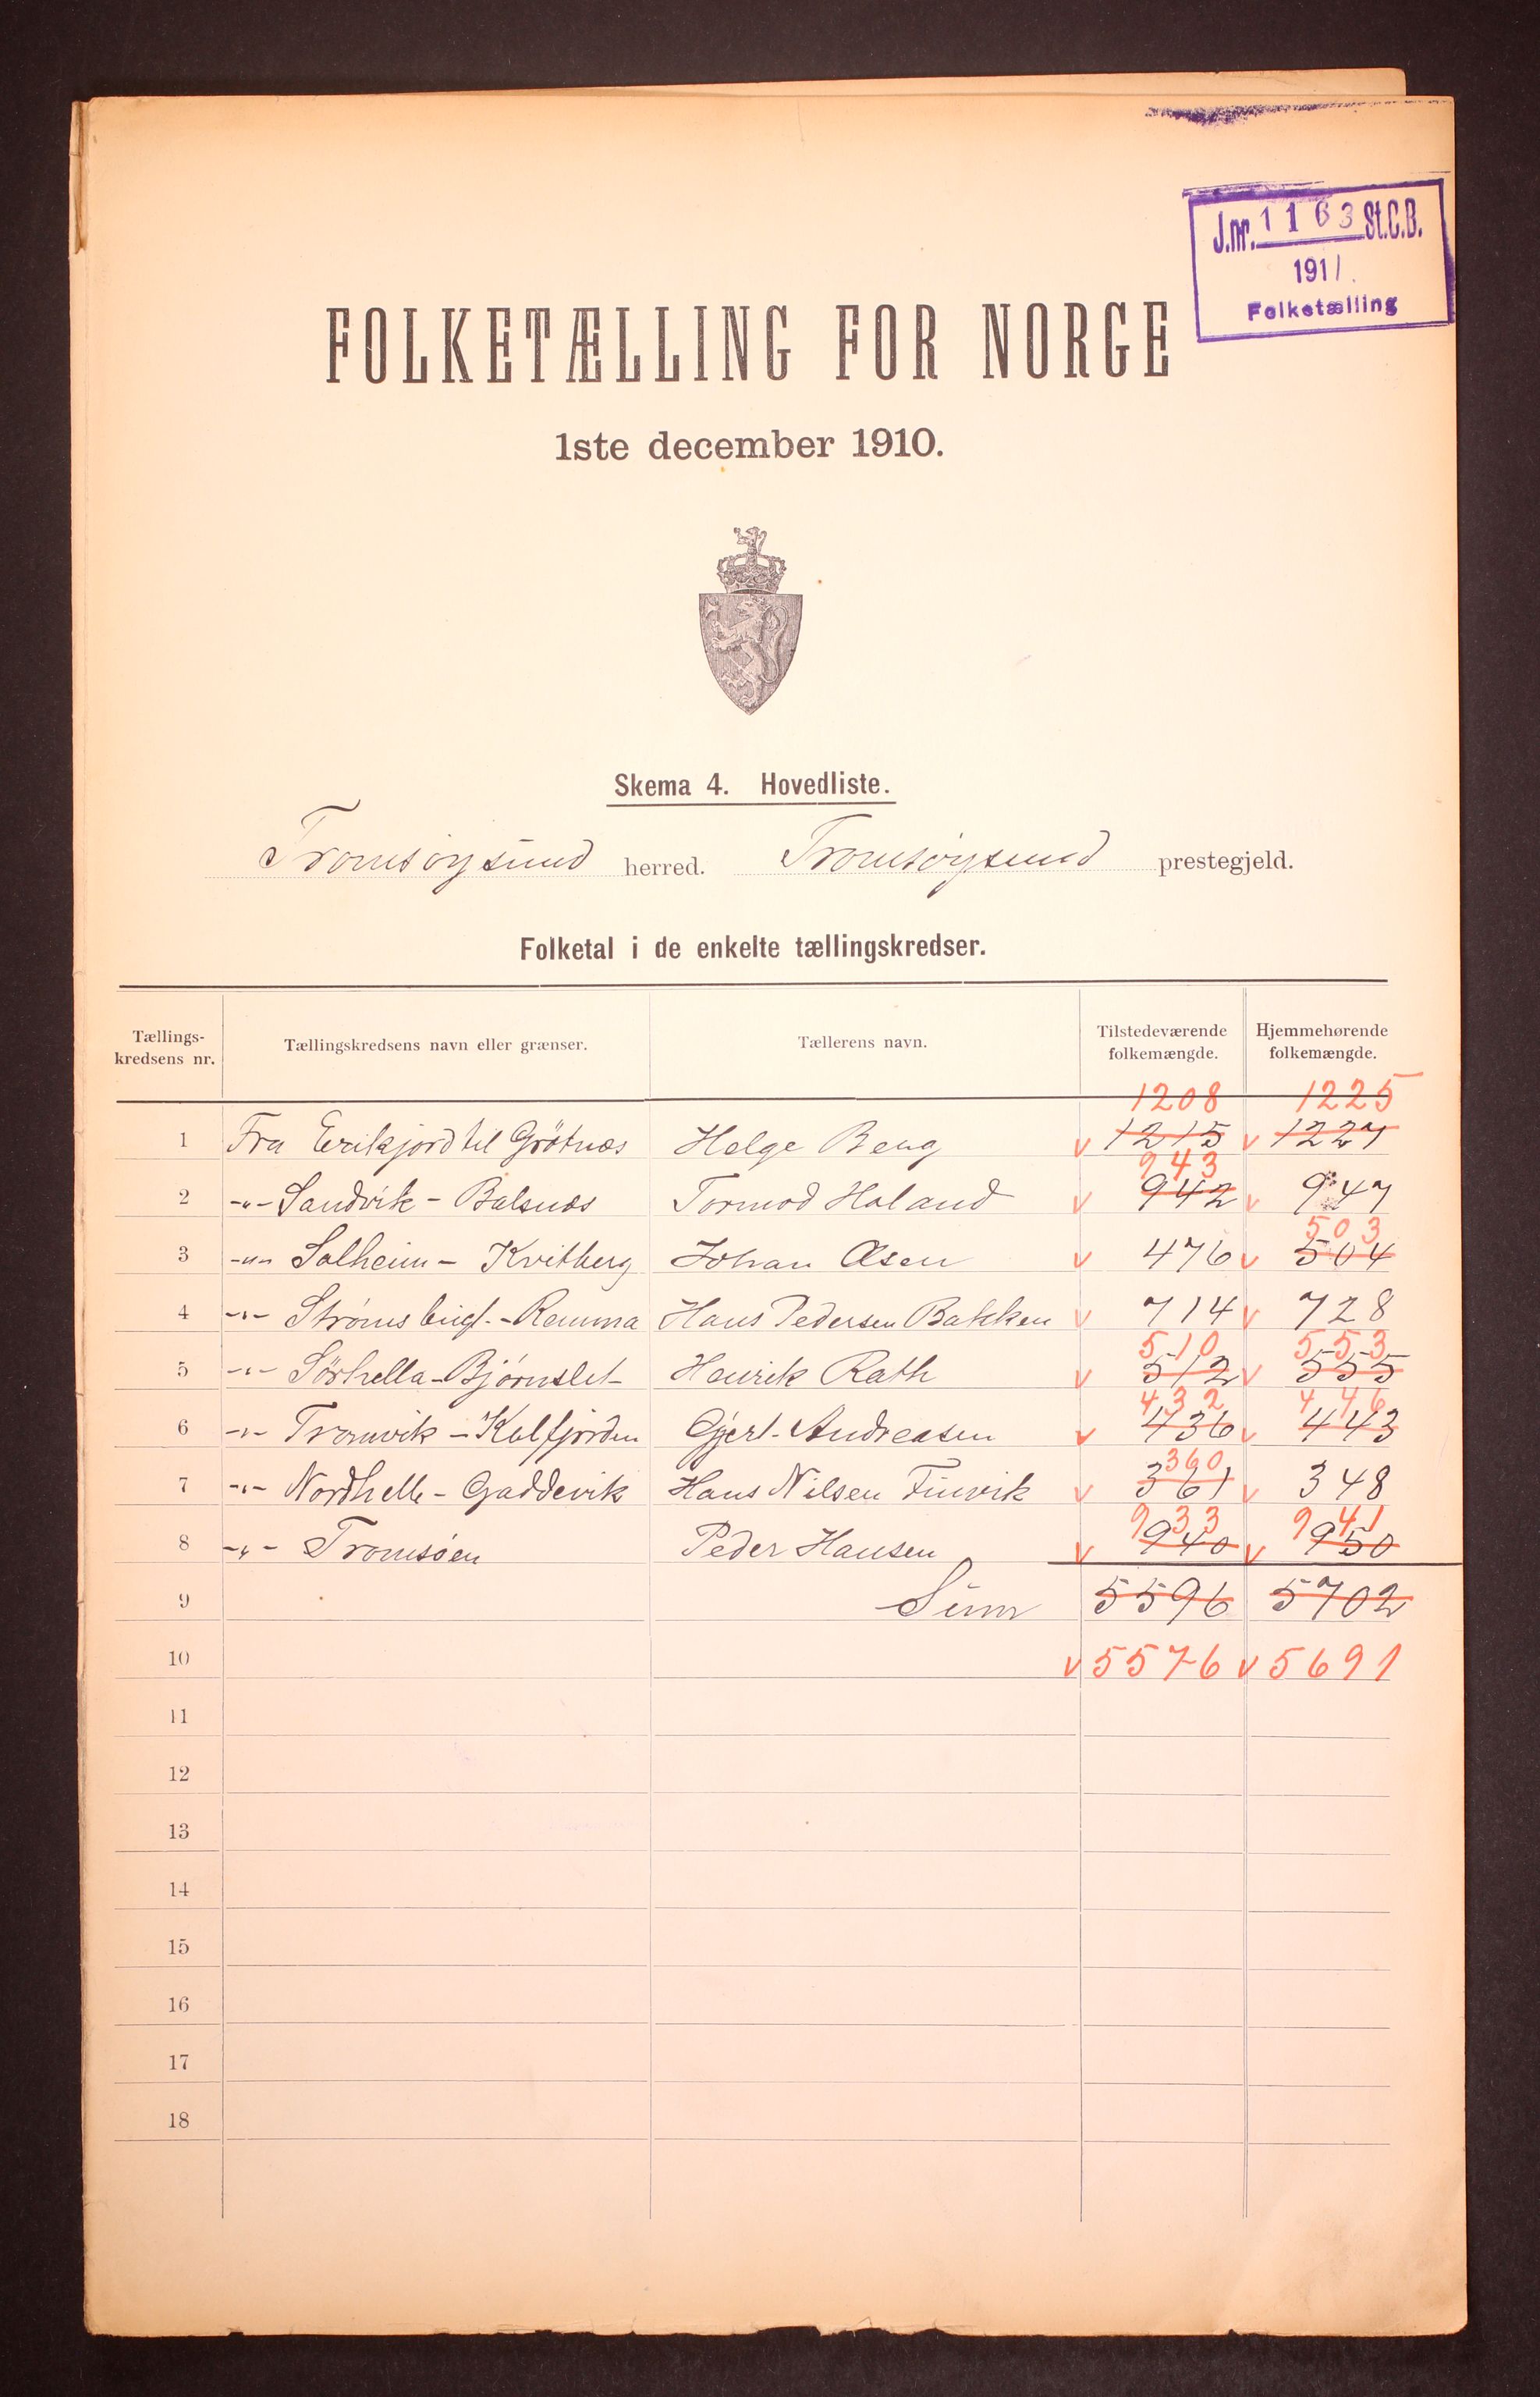 J.nr. 1163 St.C.B.
1911.
Folketælling
FOLKETÆLLING FOR NORGE
1ste december 1910.
Skema 4. Hovedliste.
Tromsøysund herred. Tromsøysund prestegjeld.
Folketal i de enkelte tællingskredser.
Tællings-kredsens nr. Tællingskredsens navn eller grænser. Tællerens navn. Tilstedeværende folkemængde. Hjemmehørende folkemængde.
1208 1225
1 Fra Erikjord til Grötnæs Helge Berg v 1215 v 1227
943
2 -"- Sandvik - Balsnæs Tormod Holand v 942 v 947
503
3 -"- Solheim - Kvitberg Johan Olsen v 476 v 504
4 -"- Strømsbugt - Ramma Hans Pedersen Bakken v 714 v 728
510 553
5 -"- Sörhella - Bjørnslet Henrik Rath v 512 v 555
432 446
6 -"- Tromvik - Kalfjorden Gjert Andreasen v 436 v 443
360
7 -"- Nordhelle - Gaddevik Hans Nilsen Finvik v 361 v 348
933 941
8 -"- Tromsøen Peder Hansen v 940 v 950
9 Sum 5596 5702
10 v 5576 v 5691
11
12
13
14
15
16
17
18